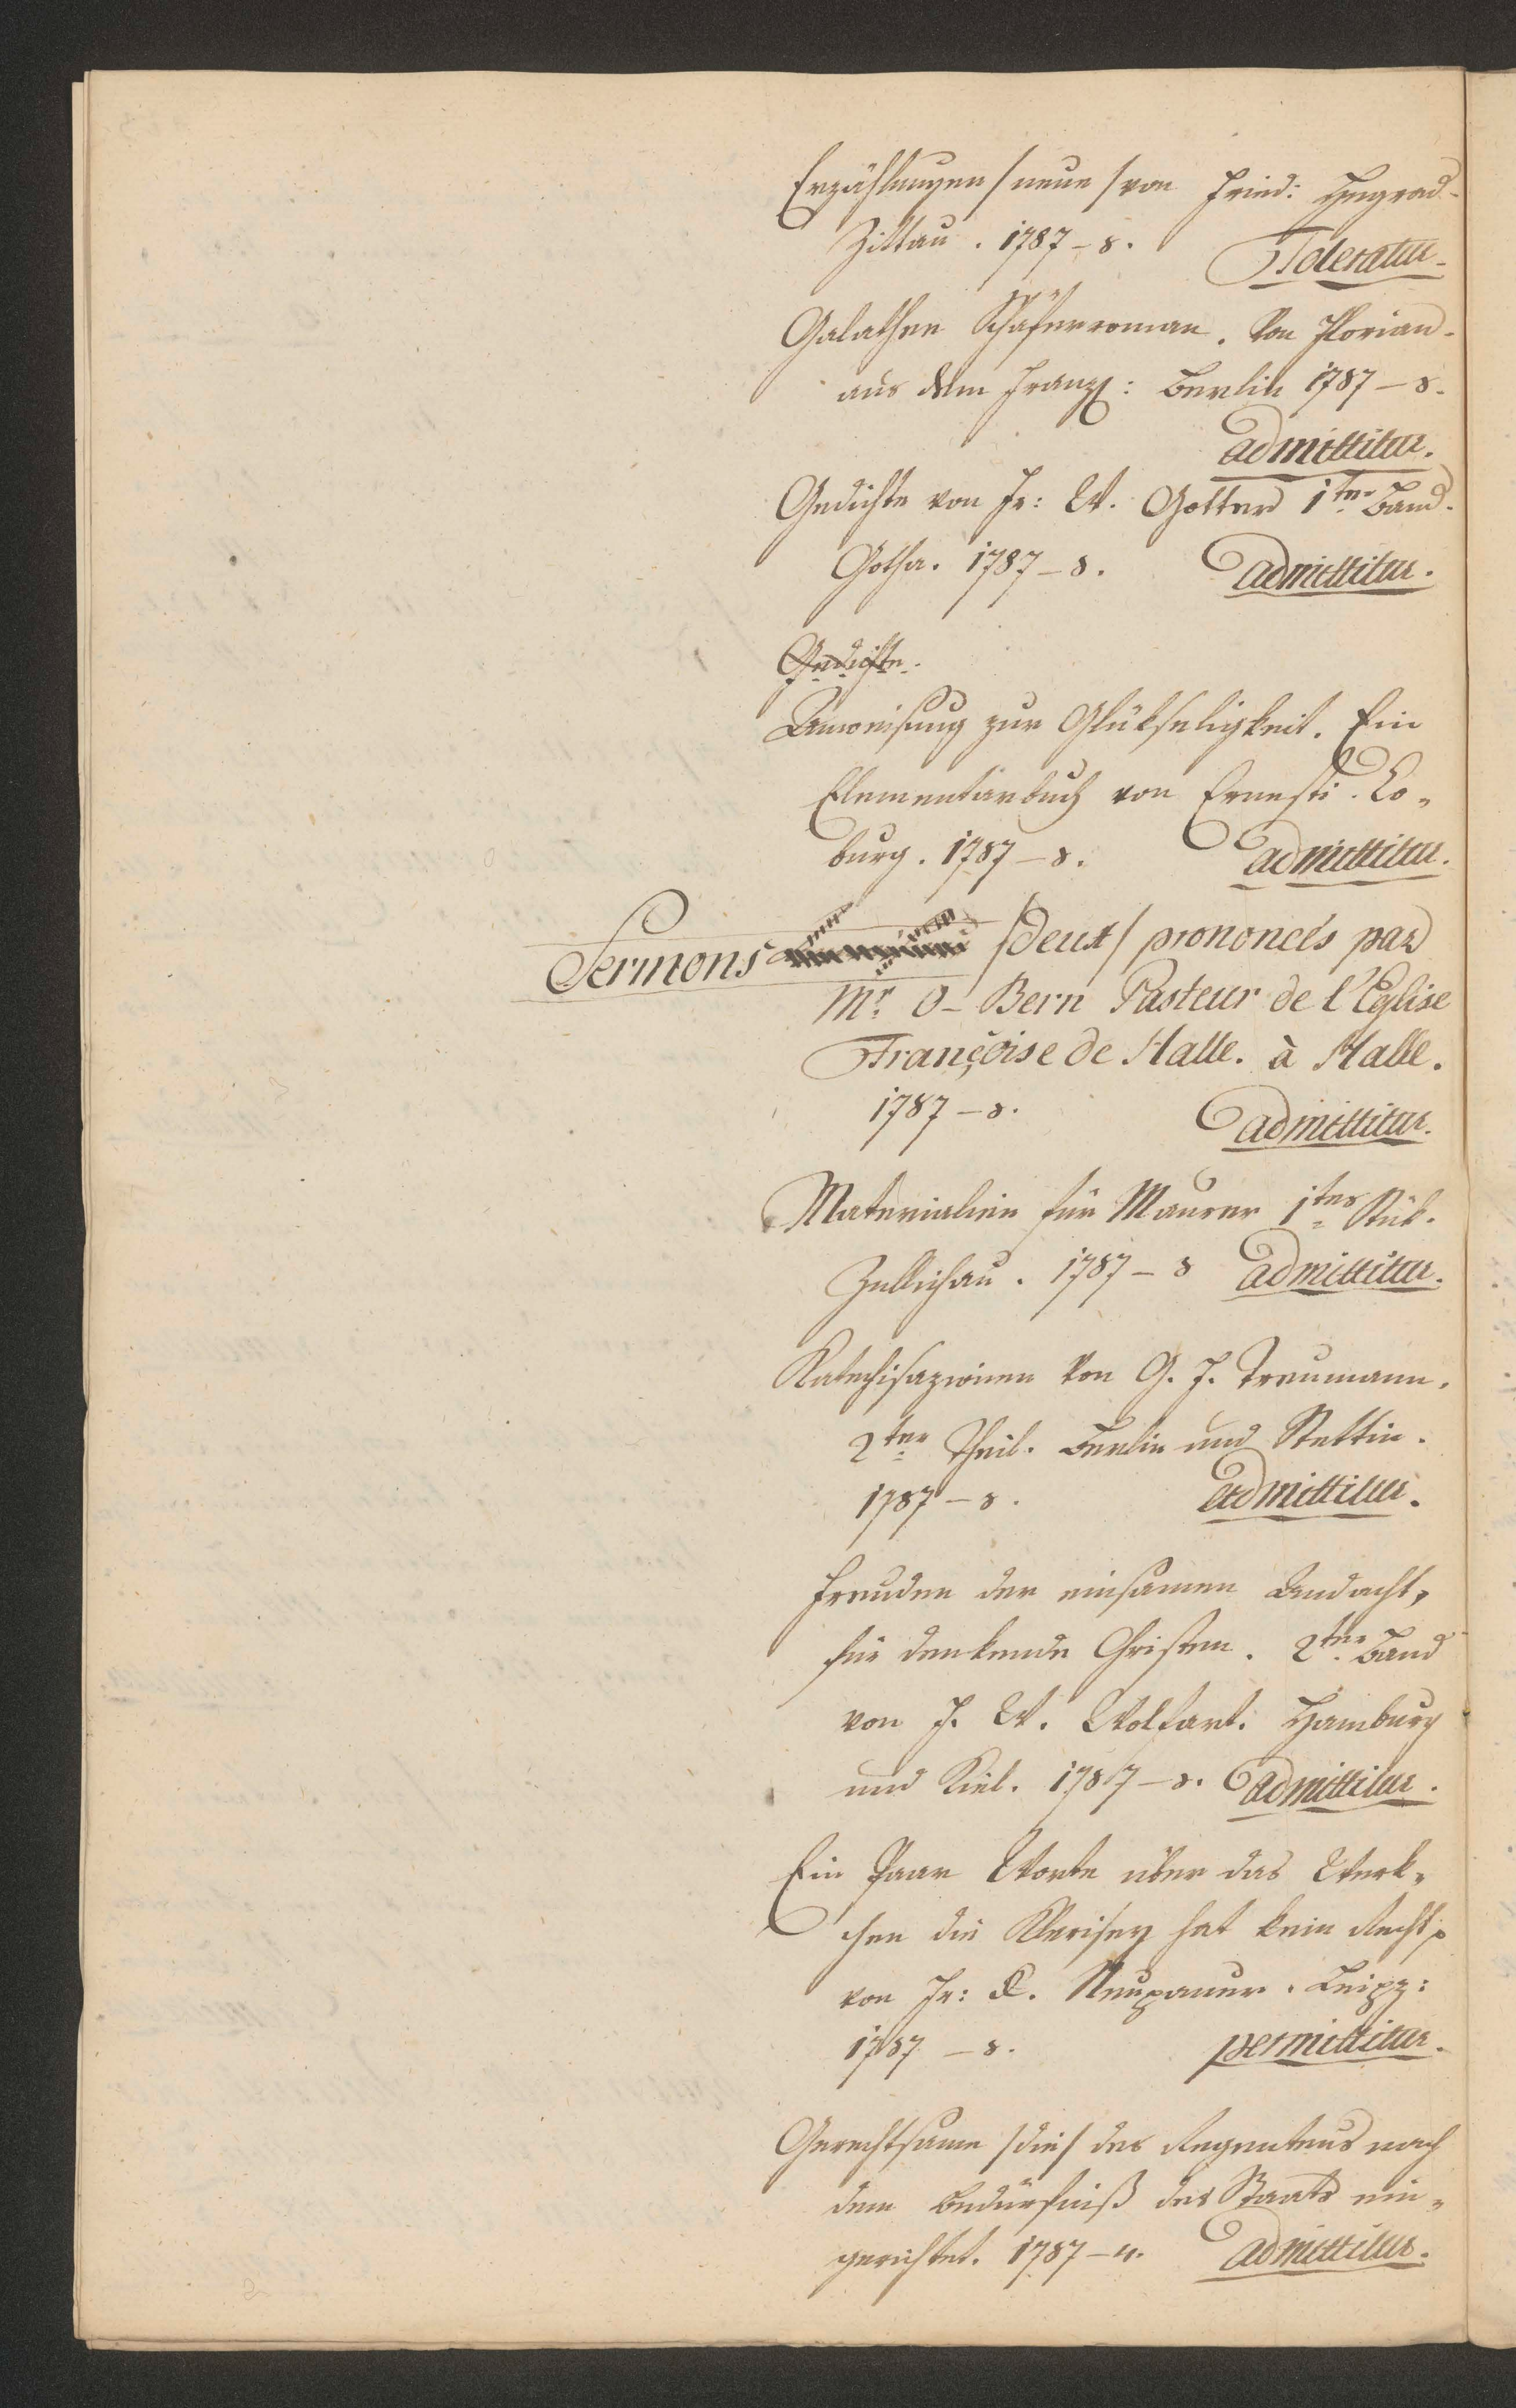 Erzählungen /neue/ von Fried: Hegrad
Zittau. 1787 – 8. Toleratur.
Galathee Schäferroman. Von Florian.
aus dem Franz: Berlin 1787 – 8.
admittitur.
Gedichte von Fr: W. Gotter 1ter Band.
Gotha. 1787 – 8. admittitur.
Gedichte.
Anweisung zur Glükseligkeit. Ein
Elementarbuch von Ernesti. Co-
burg. 1787 – 8. admittitur.
Sermons /deux/ prononcés par
Mr. O- Bern Pasteur de l'Eglise
Françoise de Halle. à Halle.
1787 – 8. admittitur.
Materialien für Maurer 1tes Stük.
Züllichau. 1787 – 8 admittitur.
Katechisazionen von G. F. Treumann.
2ter Theil. Berlin und Stettin.
1787 – 8. admittitur.
Freuden der einsamen Andacht,
für denkende Christen. 2ter Band
von J. W. Wolfart. Hamburg
und Kiel. 1787 – 8. admittitur.
Ein Paar Worte über das Werk-
chen die Klerisey hat kein Recht
von Fr: X. Neupauer. Leipz:
1787 – 8. permittitur.
Gerechtsame /die/ des Regentens nach
dem Bedürfniß des Staats ein-
gerichtet. 1787 – 4. admittitur.